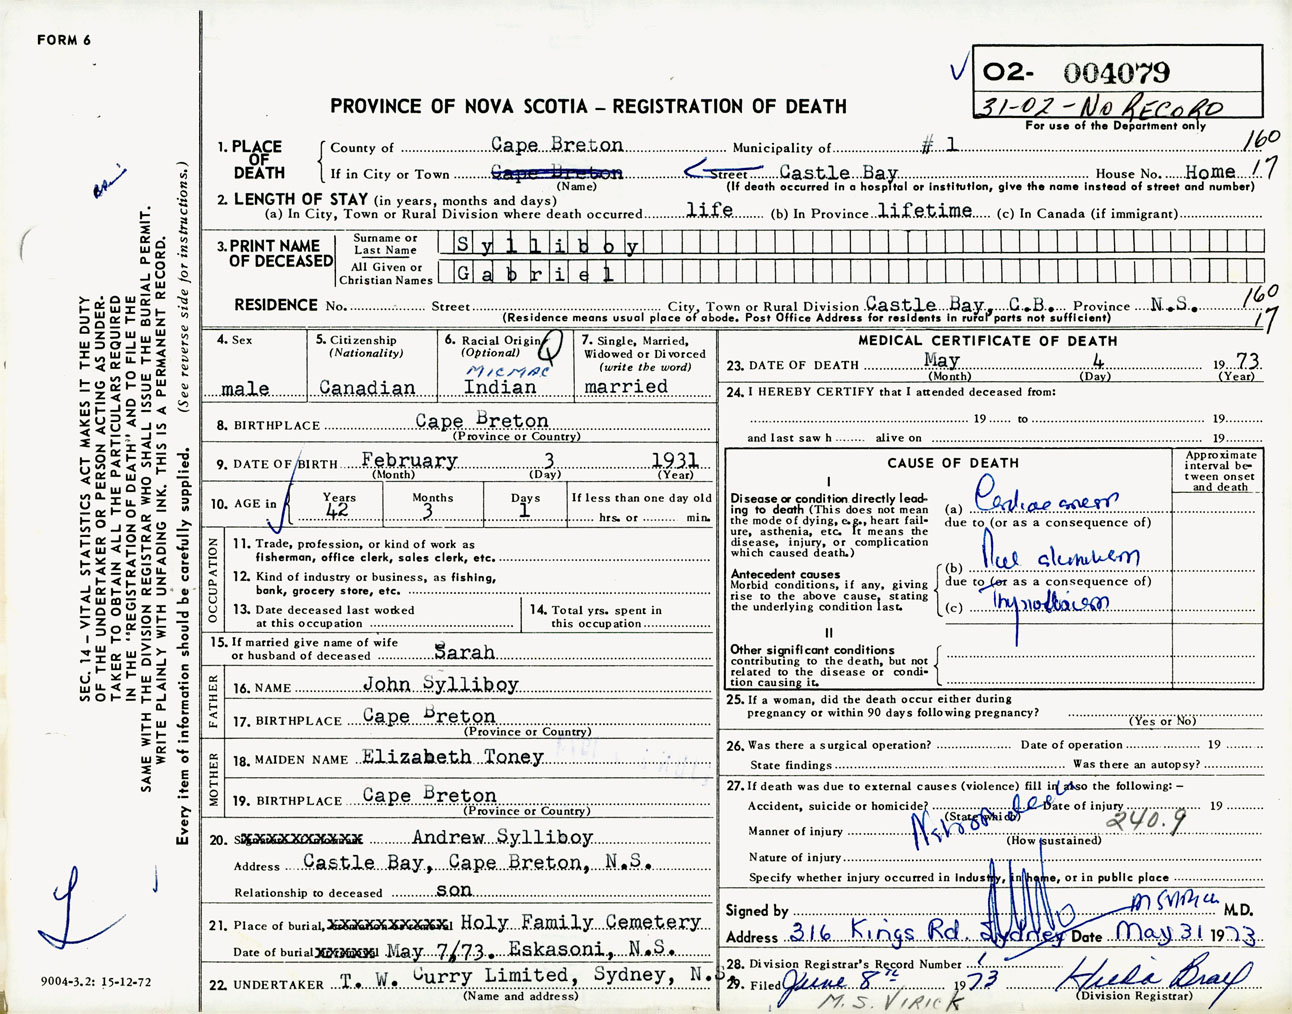 FORM 6
02- 004079
31-02 - NO RECORD
For use of the Department only
PROVINCE OF NOVA SCOTIA – REGISTRATION OF DEATH
1. PLACE OF DEATH
County of Cape Breton Municipality of # 1 160
If in City or Town Cape Breton Street Castle Bay House No. Home 17
(Name) (If death occurred in a hospital or institution, give the name instead of street and number)
2. LENGTH OF STAY (in years, months and days)
(a) In City, Town or Rural Division where death occurred life (b) In Province lifetime (c) In Canada (if immigrant)
3. PRINT NAME OF DECEASED
Surname or Last Name Sylliboy
All Given or Christian Names Gabriel
RESIDENCE No. Street City, Town or Rural Division Castle Bay, C.B. Province N.S. 160
(Residence means usual place of abode. Post Office Address for residents in rural parts not sufficient) 17
4. Sex
male
5. Citizenship
(Nationality)
Canadian
6. Racial Origin
(Optional)
MICMAC
Indian
7. Single, Married,
Widowed or Divorced
(write the word)
married
8. BIRTHPLACE Cape Breton
(Province or Country)
9. DATE OF BIRTH February 3 1931
(Month) (Day) (Year)
10. AGE in Years Months Days If less than one day old
42 3 1 hrs. or min.
OCCUPATION
11. Trade, profession, or kind of work as
fisherman, office clerk, sales clerk, etc.
12. Kind of industry or business, as fishing,
bank, grocery store, etc.
13. Date deceased last worked
at this occupation
14. Total yrs. spent in
this occupation
15. If married give name of wife
or husband of deceased Sarah
FATHER
16. NAME John Sylliboy
17. BIRTHPLACE Cape Breton
(Province or Country)
MOTHER
18. MAIDEN NAME Elizabeth Toney
19. BIRTHPLACE Cape Breton
(Province or Country)
20. Andrew Sylliboy
Address Castle Bay, Cape Breton, N.S.
Relationship to deceased son
21. Place of burial, Holy Family Cemetery
Date of burial May 7/73. Eskasoni, N.S.
22. UNDERTAKER T. W. Curry Limited, Sydney, N.S.
(Name and address)
MEDICAL CERTIFICATE OF DEATH
23. DATE OF DEATH May 4 19 73
(Month) (Day) (Year)
24. I HEREBY CERTIFY that I attended deceased from:
19 to 19
and last saw h alive on 19
CAUSE OF DEATH
Approximate
interval be-
tween onset
and death
I
Disease or condition directly lead-
ing to death (This does not mean
the mode of dying, e.g., heart fail-
ure, asthenia, etc. It means the
disease, injury, or complication
which caused death.)
(a) Cardiac
due to (or as a consequence of)
Antecedent causes
Morbid conditions, if any, giving
rise to the above cause, stating
the underlying condition last.
(b)
due to (or as a consequence of)
(c)
II
Other significant conditions
contributing to the death, but not
related to the disease or condi-
tion causing it.
25. If a woman, did the death occur either during
pregnancy or within 90 days following pregnancy?
(Yes or No)
26. Was there a surgical operation? Date of operation 19
State findings Was there an autopsy?
27. If death was due to external causes (violence) fill in also the following: –
Accident, suicide or homicide? Date of injury 19
(State which)
Manner of injury 240.9
(How sustained)
Nature of injury
Specify whether injury occurred in Industry, in home, or in public place
Signed by M.D.
Address 316 Kings Rd. Sydney Date May 31 1973
28. Division Registrar's Record Number
29. Filed June 8th 1973
M.S. VIRICK
(Division Registrar)
SEC. 14 – VITAL STATISTICS ACT MAKES IT THE DUTY
OF THE UNDERTAKER OR PERSON ACTING AS UNDER-
TAKER TO OBTAIN ALL THE PARTICULARS REQUIRED
IN THE "REGISTRATION OF DEATH" AND TO FILE THE
SAME WITH THE DIVISION REGISTRAR WHO SHALL ISSUE THE BURIAL PERMIT.
WRITE PLAINLY WITH UNFADING INK. THIS IS A PERMANENT RECORD.
Every item of information should be carefully supplied. (See reverse side for instructions.)
9004-3.2: 15-12-72